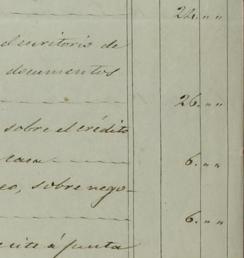 24 „ „
el escritorio de
documentos
26 „ „
sobre el crédito
casa 6 „ „
eo, sobre nego-
6 „ „
á junta